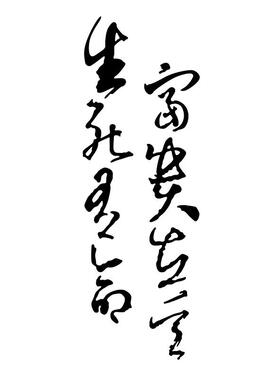 富貴在天
生死有命